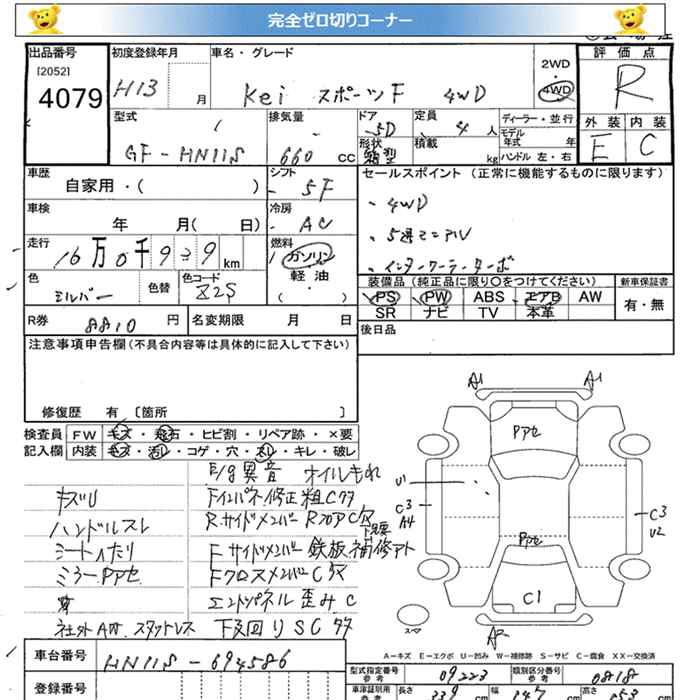 完全ゼロ切りコーナー
出品番号
[2052]
4079
初度登録年月
H13 月
車名・グレード
Kei スポーツF 4WD
2WD
4WD
評価点
R
外装 内装
E C
型式
GF-HN11S
排気量
660 cc
ドア
5D
形状
箱型
定員
4 人
積載
kg
ディーラー・並行
モデル年式 年
ハンドル 左・右
車歴
自家用・( )
シフト
5F
車検
年 月( 日)
冷房
AC
走行
16万0千939km
燃料
ガソリン
軽油
( )
色
シルバー
色替
色コード
Z2S
R券
8810 円
名変期限 月 日
セールスポイント(正常に機能するものに限ります)
4WD
5速マニアル
インタークーラーターボ
装備品(純正品に限り○をつけてください)
PS PW ABS エアB AW
SR ナビ TV 本革
新車保証書
有・無
後日品
注意事項申告欄(不具合内容等は具体的に記入して下さい)
修復歴 有 〔箇所 〕
検査員
記入欄
FW キズ・飛石・ヒビ割・リペア跡・×要
内装 キズ・汚レ・コゲ・穴・スレ・キレ・破レ
E/g異音 オイルもれ
キズU
Fインパネ修正粗Cサ
ハンドルスレ
RサイドメンバーRフロアC穴
下見要
シートへたり
Fサイドメンバー鉄板補修アト
ミラーPアセ
FクロスメンバーC穴
エンドパネル歪みC
社外AW.スタッドレス
下回りSCサ
A1
A1
Pアセ
U1
C3
A4
C3
U2
Pアセ
C1
A2
スマ
A-キズ E-エクボ U-凹み W-補修跡 S-サビ C-腐食 XX-交換済
車台番号
HN11S-694586
登録番号
型式指定番号
参考
09223
類別区分番号
参考
0818
車津証明用
参考
長さ
339 cm
幅
147 cm
高さ